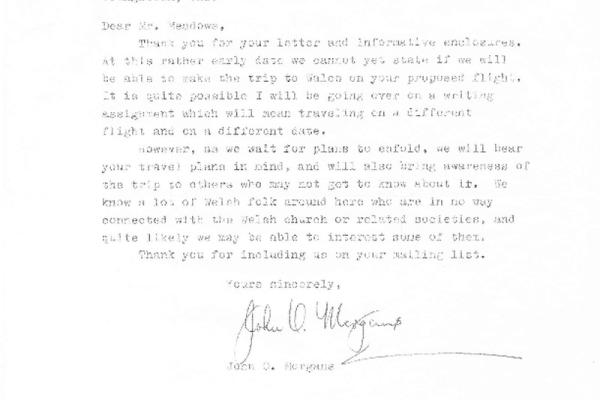 Dear Mr. Meadows,
Thank you for your letter and informative enclosures.
At this rather early date we cannot yet state if we will
be able to make the trip to Wales on your proposed flight.
It is quite possible I will be going over on a writing
assignment which will mean traveling on a different
flight and on a different date.
However, as we wait for plans to enfold, we will bear
your travel plans in mind, and will also bring awareness of
the trip to others who may not get to know about it. We
know a lot of Welsh folk around here who are in no way
connected with the Welsh church or related societies, and
quite likely we may be able to interest some of them.
Thank you for including us on your mailing list.
Yours sincerely,
John O. Morgans
John O. Morgans